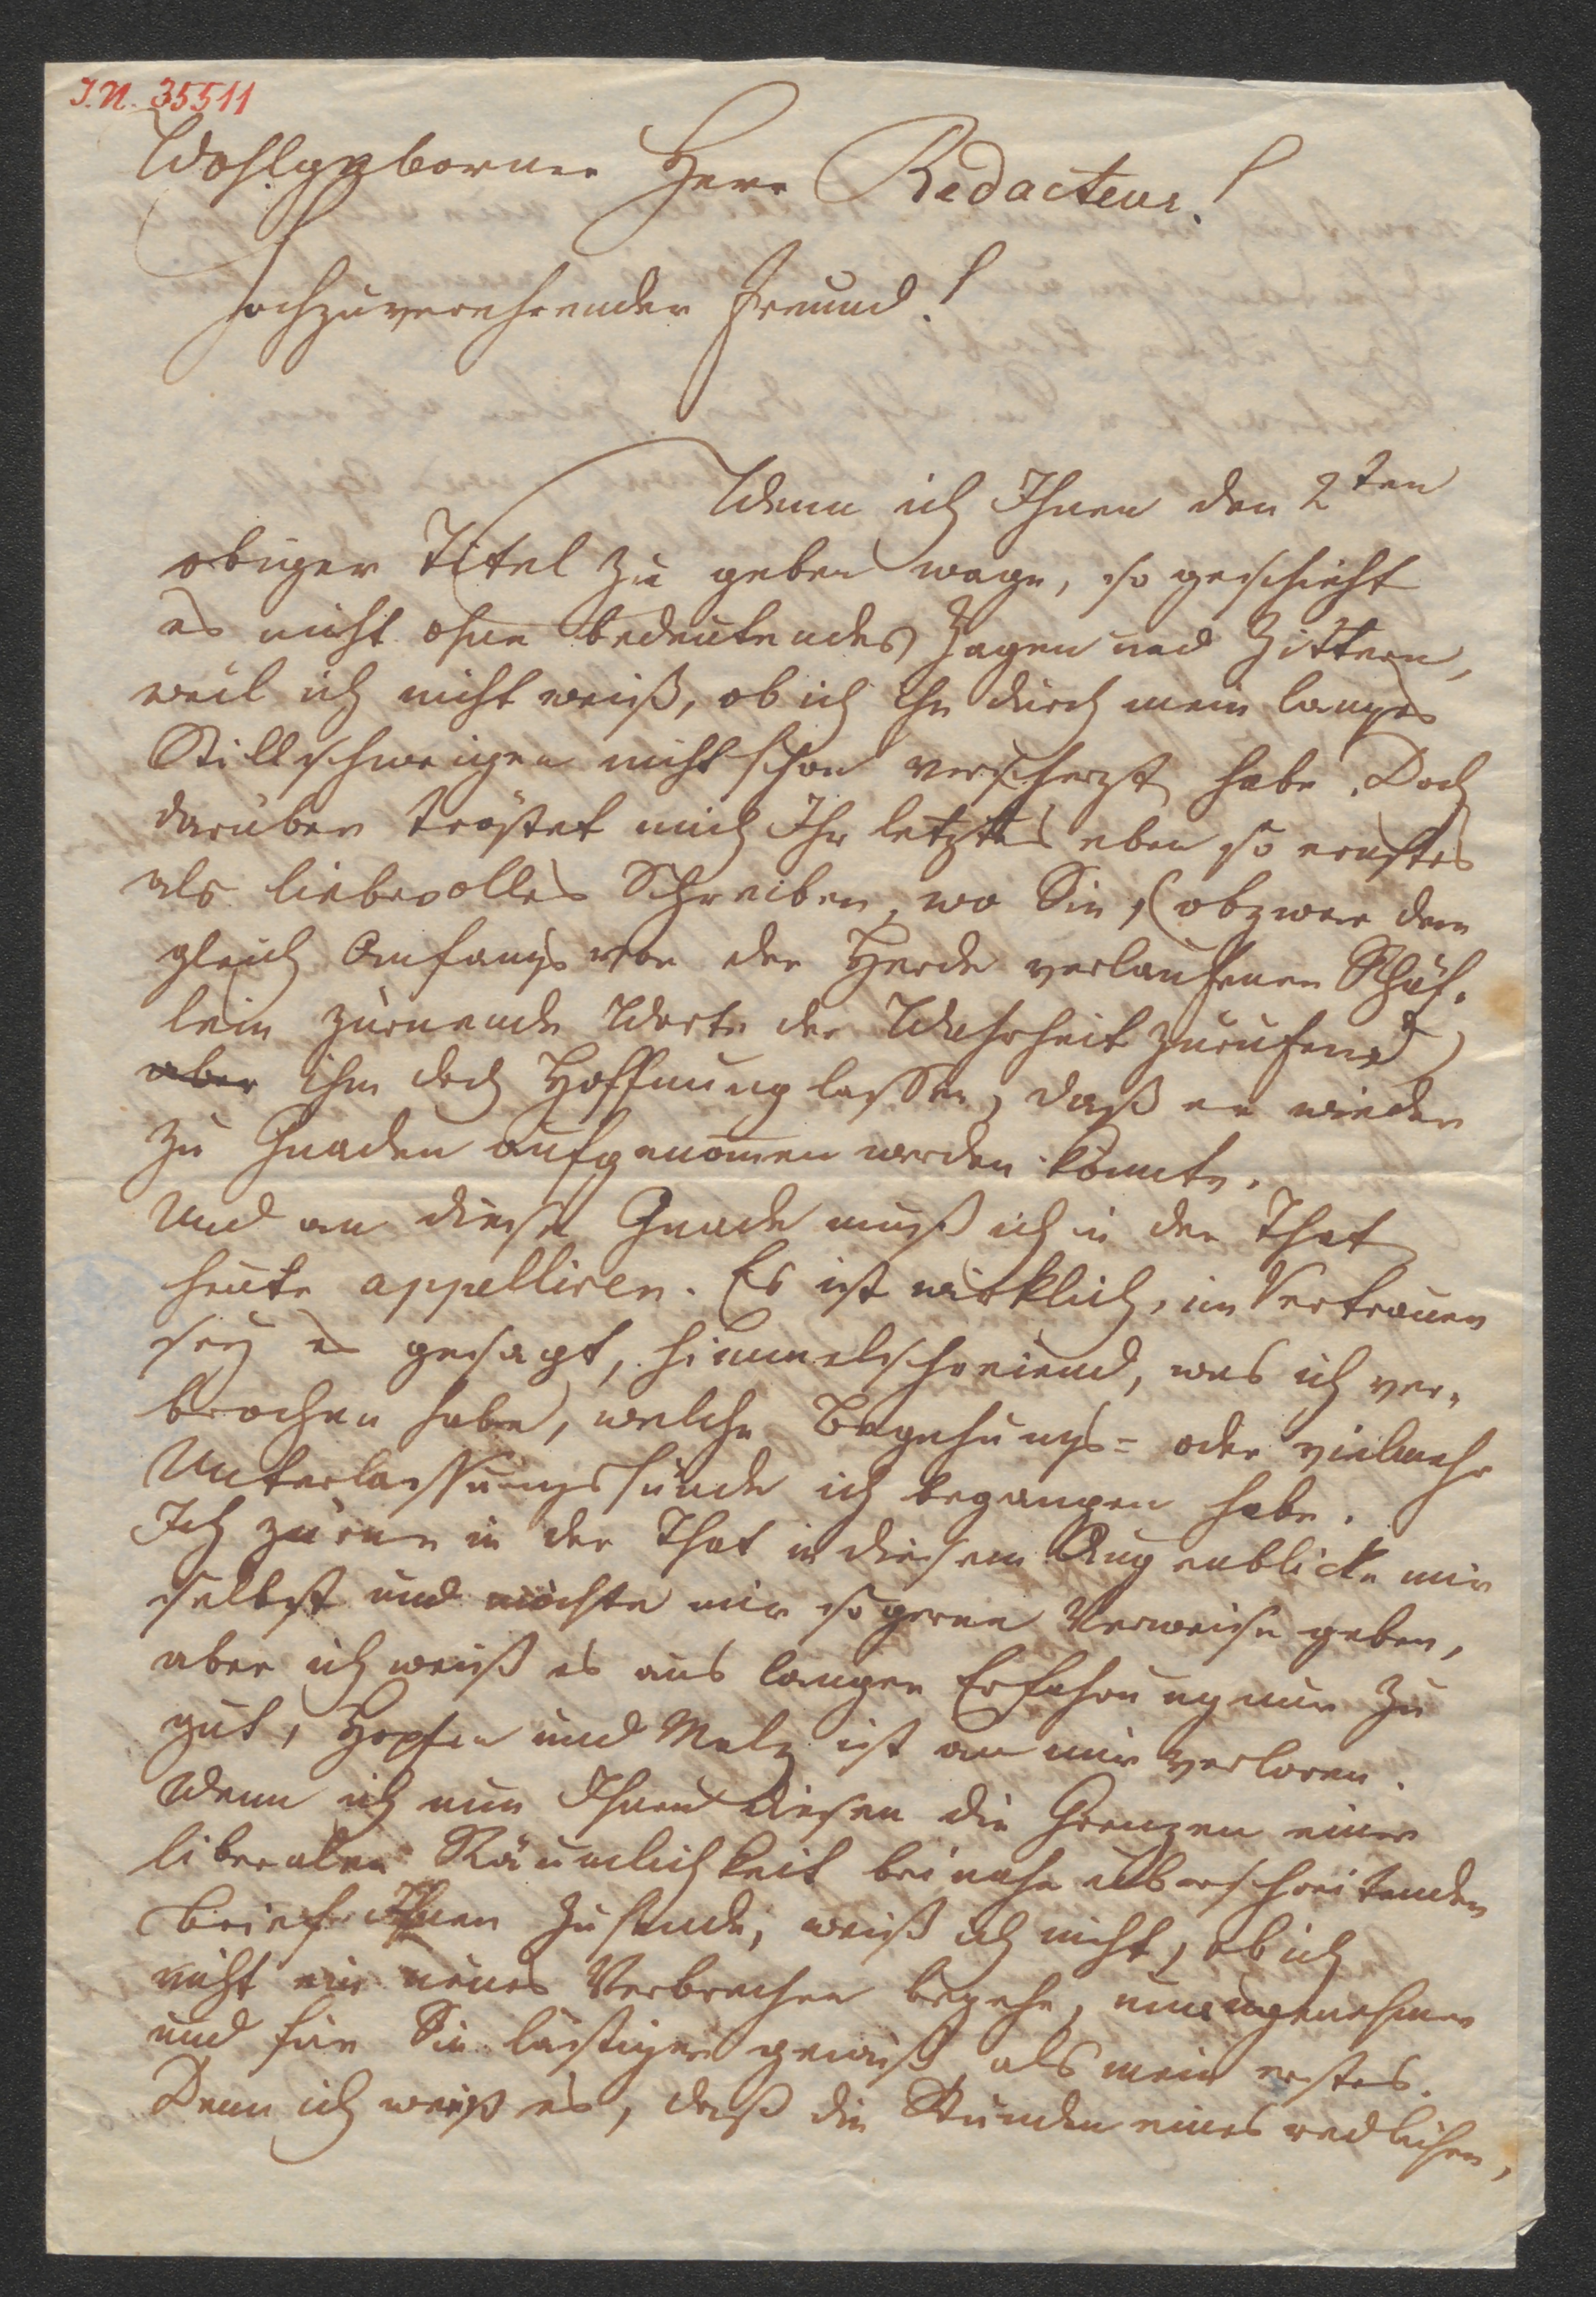 I.N. 35511
Wohlgeborner Herr Redacteur!
Hochzuverehrender Freund!
Wenn ich Ihnen den 2ten
obiger Titel zu geben wage, so geschieht
es nicht ohne bedeutendes Zagen und Zittern,
weil ich nicht weiß, ob ich ihn durch mein langes
Stillschweigen nicht schon verscherzt habe. Doch
darüber tröstet mich Ihr letztes eben so ernstes
als liebevolles Schreiben, wo Sie, (obzwar dem
gleich Anfangs von der Herde verlaufenen Schäf-
lein zürnende Worte der Wahrheit zurufend)
aber ihm doch Hoffnung lassen, daß er wieder
zu Gnaden aufgenommen werden könnte.
Und an diese Gnade muß ich in der That
heute appelliren. Es ist wirklich, im Vertrauen
sey es gesagt, himmelschreiend, was ich ver-
brochen habe, welche Begehungs- oder vielmehr
Unterlassungssünde ich begangen habe.
Ich zürne in der That in diesem Augenblicke mir
selbst und möchte mir so gerne Verweise geben,
aber ich weiß es aus langer Erfahrung nur zu
gut, Hopfen und Malz ist an mir verloren.
Wenn ich nun Ihnen diesen die Grenzen einer
liberalen Räumlichkeit beinahe überschreitenden
Brief Ihnen zusende, weiß ich nicht, ob ich
nicht ein neues Verbrechen begehe, unangenehmer
und für Sie lästiger gewiß als mein erstes.
Denn ich weiß es, daß die Stunden eines redlichen,